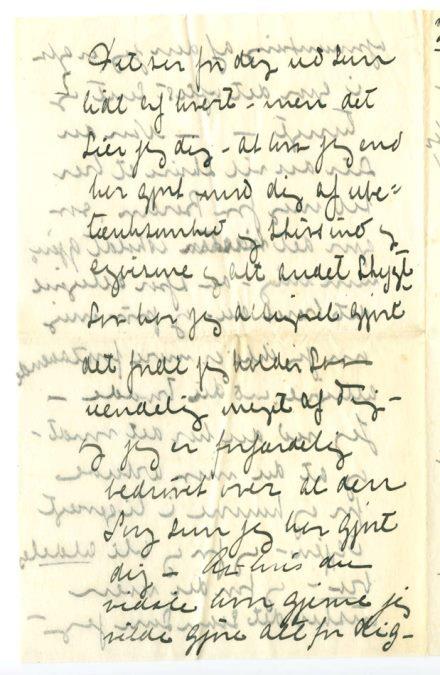 Det ser for dig ud som
lidt af hvert – men det
siger jeg dig – at hvor jeg end
har gjort imod dig af ube=
tænksomhed og
egoisme og alt andet Stygt
Saa har jeg alligevel gjort
det fordi jeg holder Saa
uendelig meget af Dig –
og jeg er forfærdelig
bedrøvet over al den
Sorg som jeg har gjort
dig – hvis du
vidste hvor gjerne jeg
vilde gjøre alt for Dig –